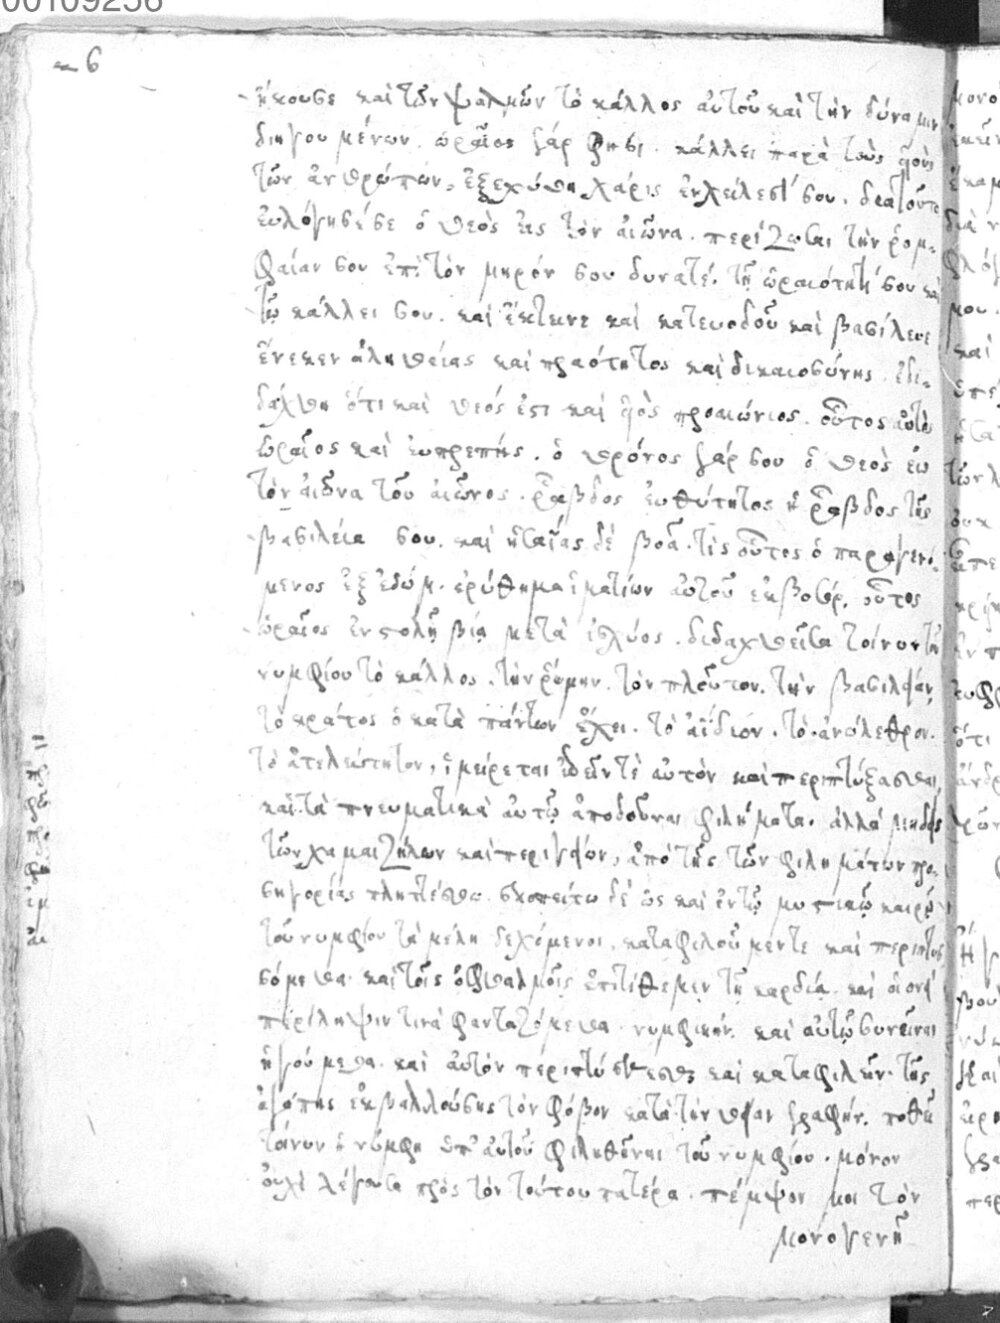 00109256
6
ἤκουσε καὶ τῶν ψαλμῶν τὸ κάλλος αὐτοῦ καὶ τὴν δύναμιν
διηγουμένων. ὡραῖος γάρ φησι κάλλει παρὰ τοὺς υἱοὺς
τῶν ἀνθρώπων, ἐξεχύθη χάρις ἐν χείλεσί σου. διατοῦτο
εὐλόγησέ σε ὁ θεὸς εἰς τὸν αἰῶνα. περίζωσαι τὴν ῥομ-
φαίαν σου ἐπὶ τὸν μηρόν σου δυνατέ. τῇ ὡραιότητί σου καὶ
τῷ κάλλει σου. καὶ ἔκτεινε καὶ κατευοδοῦ καὶ βασίλευε
ἕνεκεν ἀληθείας καὶ πραότητος καὶ δικαιοσύνης. ἐδι-
δάχθη ὅτι καὶ θεός ἐστι καὶ υἱὸς προαιώνιος. οὗτος
ὡραῖος καὶ εὐπρεπής. ὁ θρόνος γάρ σου ὁ θεὸς εἰς
τὸν αἰῶνα τοῦ αἰῶνος. ῥάβδος εὐθύτητος ἡ ῥάβδος τῆς
βασιλεία σου. καὶ ἡσαΐας δὲ βοᾶ. τίς οὗτος ὁ παραγενό-
μενος ἐξ ἐδώμ. ἐρύθημα ἱματίων αὐτοῦ ἐκ βοσόρ. οὗτος
ὡραῖος ἐν στολῇ βίᾳ μετὰ ἰσχύος. διδαχθεῖσα τοίνυν τοῦ
νυμφίου τὸ κάλλος. τὴν ῥώμην. τὸν πλοῦτον. τὴν βασιλείαν
τὸ κράτος ὁ κατὰ πάντων ἔχει. τὸ ἀΐδιον. τὸ ἀνώλεθρον.
τὸ ἀτελεύτητον, ἱμείρεται ἰδεῖν τὲ αὐτὸν καὶ περιπτύξασθαι,
καὶ τὰ πνευματικὰ αὐτῷ ἀποδοῦναι φιλήματα. ἀλλὰ μηδεὶς
τῶν χαμαιζήλων καὶ περιγείων, ἀπὸ τῆς τῶν φιλημάτων προ-
σηγορίας πληττέσθω. σκοπείτω δὲ ὡς καὶ ἐν τῷ μυστικῷ καιρῷ
τοῦ νυμφίου τὰ μέλη δεχόμενοι, καταφιλοῦμεν τε καὶ περιπτυσ-
σόμεθα καὶ τοῖς ὀφθαλμοῖς ἐπιτίθεμεν τῇ καρδίᾳ. καὶ οἱονεὶ
περίληψιν τινὰ φανταζόμεθα νυμφικήν. καὶ αὐτῷ συνεῖναι
ἡγούμεθα. καὶ αὐτὸν περιπτύσσεσθαι καὶ καταφιλεῖν. τῆς
ἀγάπης ἐκβαλλούσης τὸν φόβον κατὰ τὴν θείαν γραφήν. ποθεῖ
τοίνυν ἡ νύμφη ὑπ' αὐτοῦ φιληθῆναι τοῦ νυμφίου. μόνον
οὐχὶ λέγουσα πρὸς τὸν τούτου πατέρα. πέμψον μοι τὸν
μονογενῆ